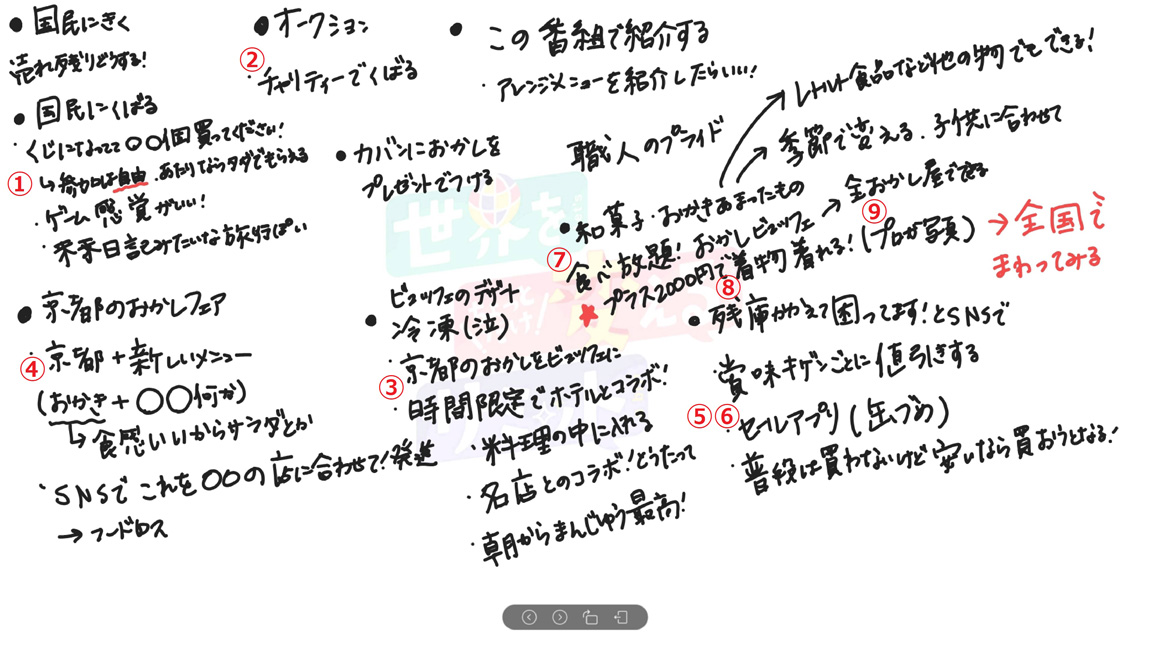 ● 国民にきく
売れ残りどうする!
● 国民にくばる
・くじになってて〇〇個買ってください!
① ↳ 参加は自由.あたりならタダでもらえる
・ゲーム感覚がいい!
・米米日記みたいな旅行っぽい
● 京都のおかしフェア
④ ・京都+新しいメニュー
(おかき+〇〇何か)
↳ 食感いいからサラダとか
・SNSでこれを〇〇の店に合わせて!発送
→フードロス
● オークション
② ・チャリティーでくばる
● カバンにおかしを
プレゼントでつける
ビュッフェのデザート
● 冷凍(泣)
・京都のおかしをビュッフェに
③ ・時間限定でホテルとコラボ!
・料理の中に入れる
・名店とのコラボ!とうたって
・朝からまんじゅう最高!
● この番組で紹介する
・アレンジメニューを紹介したらいい!
レトルト食品など他の物でもできる!
季節で変える.子供に合わせて
職人のプライド
● 和菓子・おかきあまったもの
⑦ 食べ放題!おかしビュッフェ → 全おかし屋でやる
★ プラス2000円で⑧着物着れる!(⑨プロが写真)
→全国で
まわってみる
● 残庫かかえて困ってます!とSNSで
賞味キゲンごとに値引きする
⑤⑥ ・セールアプリ(缶づめ)
・普段は買わないけど安いなら買おうとなる!
世界を
変える。